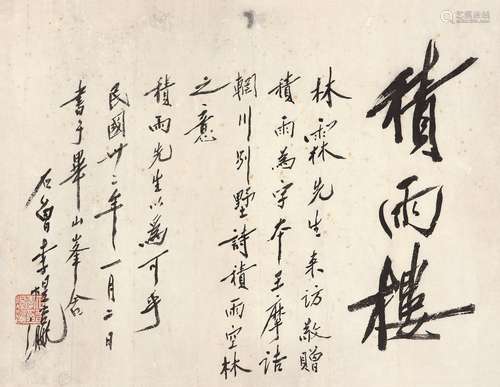 積雨樓
林霖先生来访敬贈
積雨為字本王摩诘
輞川别墅詩積雨空林
之意
積雨先生以為可乎
民國卅二年一月二日
書于畢山峯舍
石曾李煜瀛